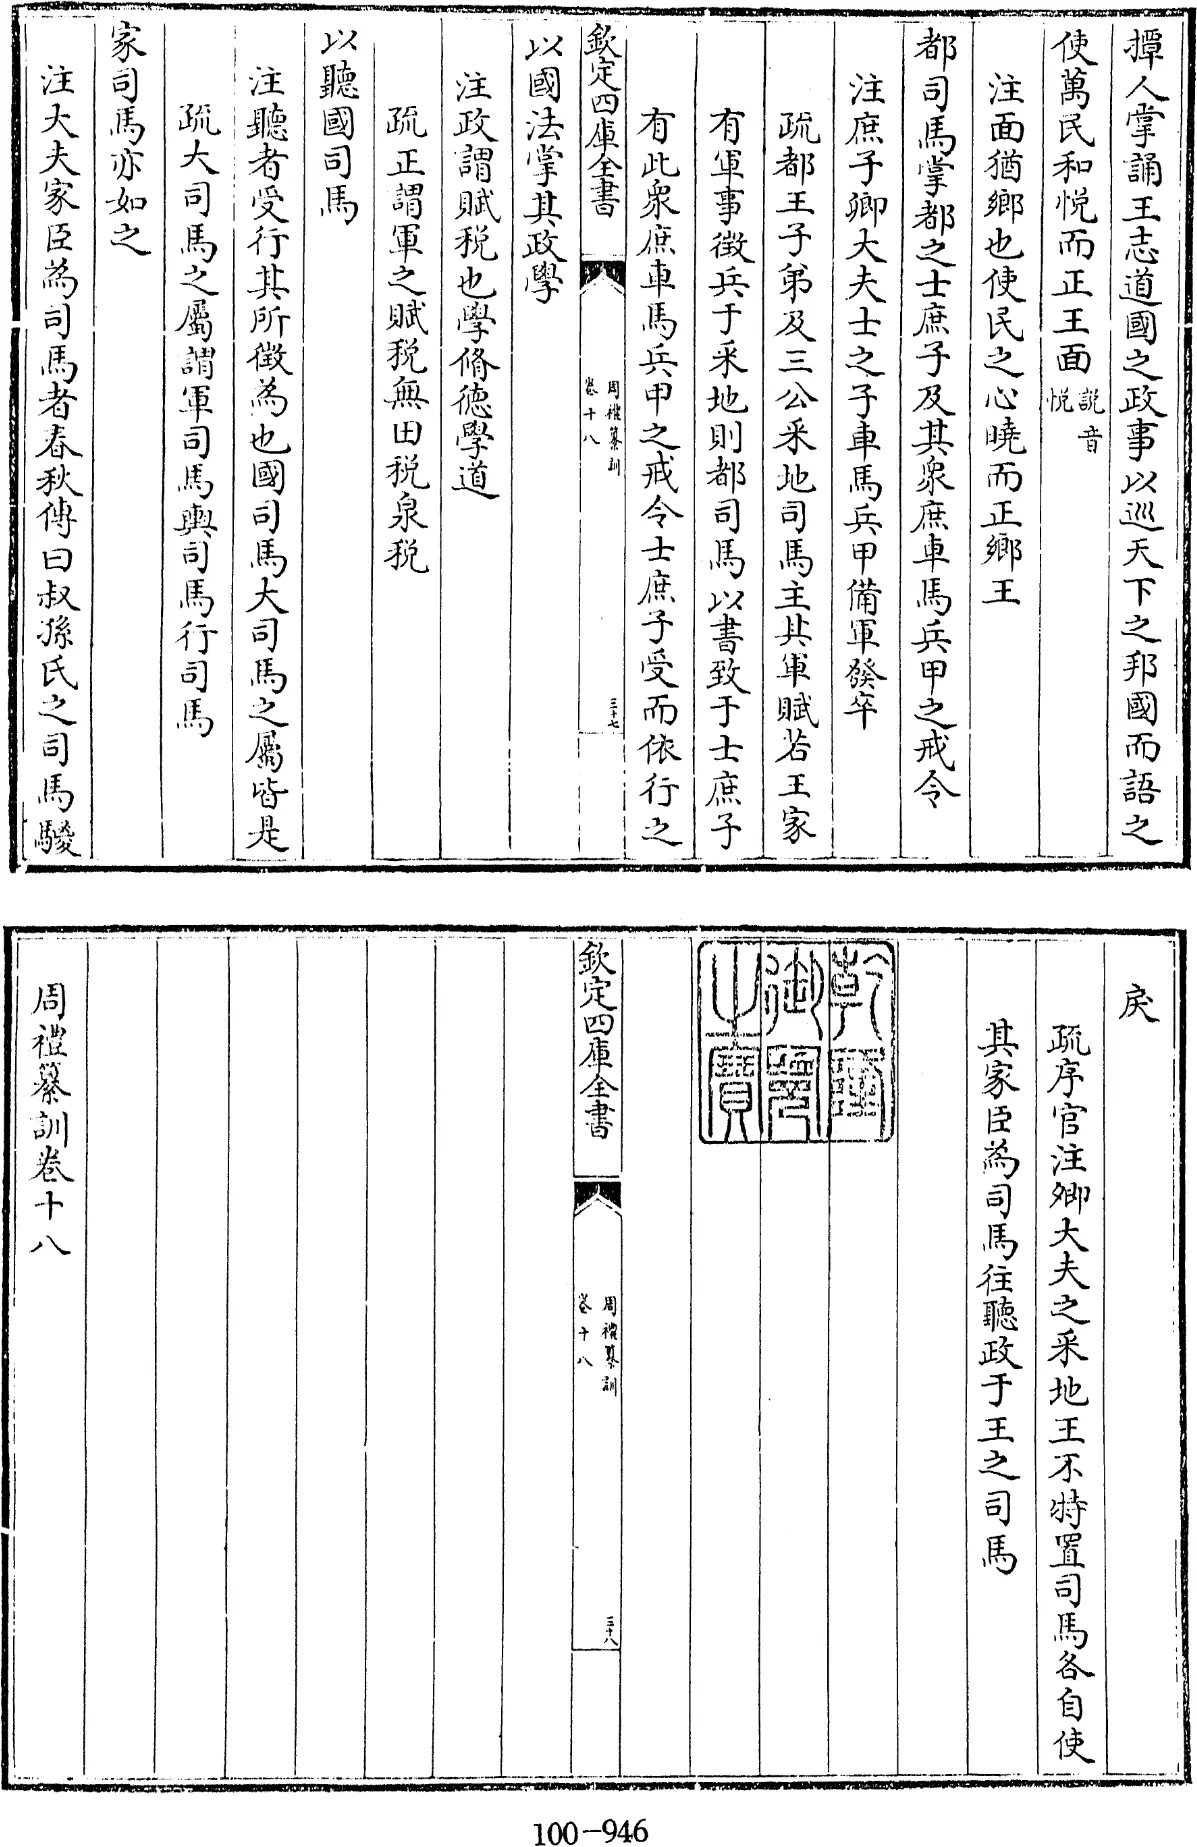 撢人掌誦王志道國之政事以巡天下之邦國而語之
使萬民和悦而正王面説音悦
注面猶鄉也使民之心曉而正鄉王
都司馬掌都之士庶子及其衆庶車馬兵甲之戒令
注庶子卿大夫士之子車馬兵甲備軍發卒
疏都王子弟及三公采地司馬主其軍賦若王家
有軍事徵兵于采地則都司馬以書致于士庶子
有此衆庶車馬兵甲之戒令士庶子受而依行之
欽定四庫全書
周禮纂訓
卷十八
三十七
以國法掌其政學
注政謂賦税也學脩德學道
疏正謂軍之賦税無田税泉税
以聽國司馬
注聽者受行其所徵為也國司馬大司馬之屬皆是
疏大司馬之屬謂軍司馬輿司馬行司馬
家司馬亦如之
注大夫家臣為司馬者春秋傳曰叔孫氏之司馬鬷
戾
疏序官注卿大夫之采地王不特置司馬各自使
其家臣為司馬往聽政于王之司馬
乾隆御覽之寶
欽定四庫全書
周禮纂訓
卷十八
三十八
周禮纂訓卷十八
100-946